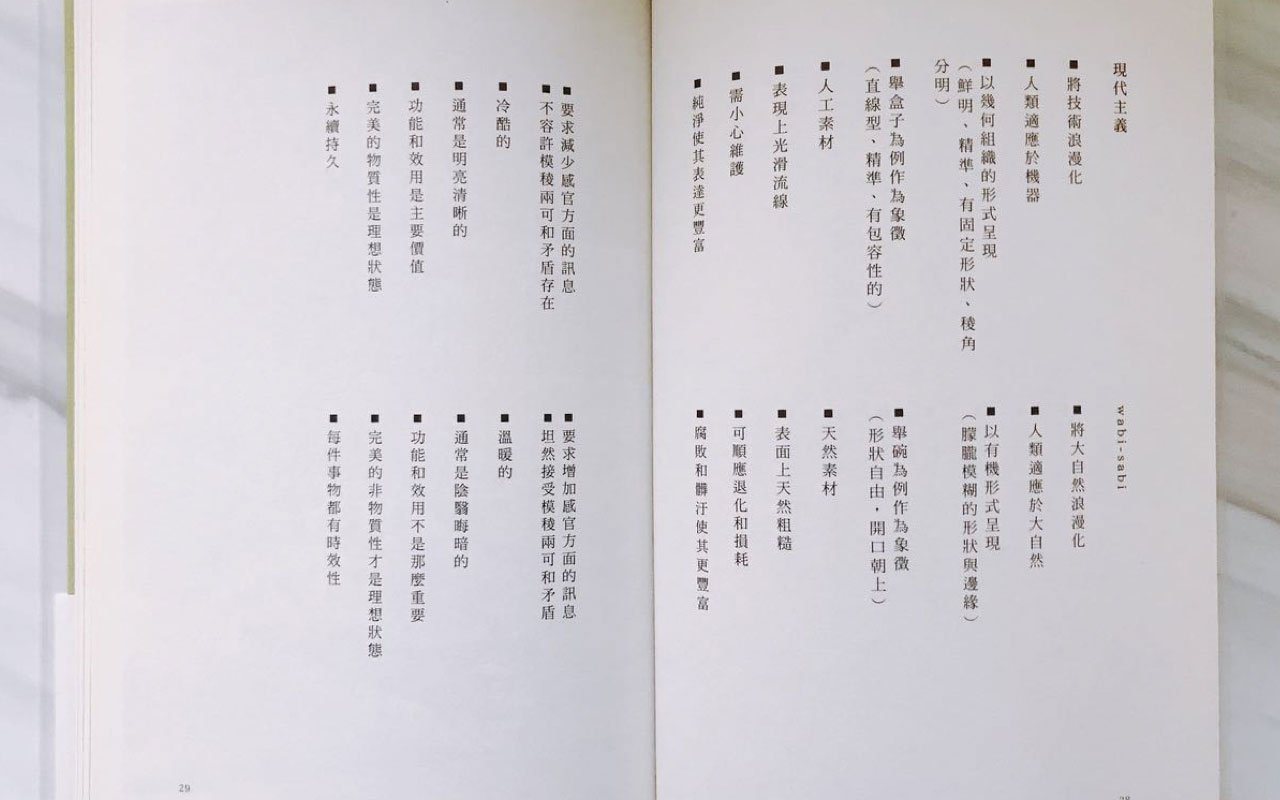 現代主義
■將技術浪漫化
■人類適應於機器
■以幾何組織的形式呈現
（鮮明、精準、有固定形狀、稜角
分明）
■舉盒子為例作為象徵
（直線型、精準、有包容性的）
■人工素材
■表現上光滑流線
■需小心維護
■純淨使其表達更豐富
wabi-sabi
■將大自然浪漫化
■人類適應於大自然
■以有機形式呈現
（朦朧模糊的形狀與邊緣）
■舉碗為例作為象徵
（形狀自由，開口朝上）
■天然素材
■表面上天然粗糙
■可順應退化和損耗
■腐敗和髒汙使其更豐富
28
■要求減少感官方面的訊息
■不容許模稜兩可和矛盾存在
■冷酷的
■通常是明亮清晰的
■功能和效用是主要價值
■完美的物質性是理想狀態
■永續持久
■要求增加感官方面的訊息
■坦然接受模稜兩可和矛盾
■溫暖的
■通常是陰翳晦暗的
■功能和效用不是那麼重要
■完美的非物質性才是理想狀態
■每件事物都有時效性
29